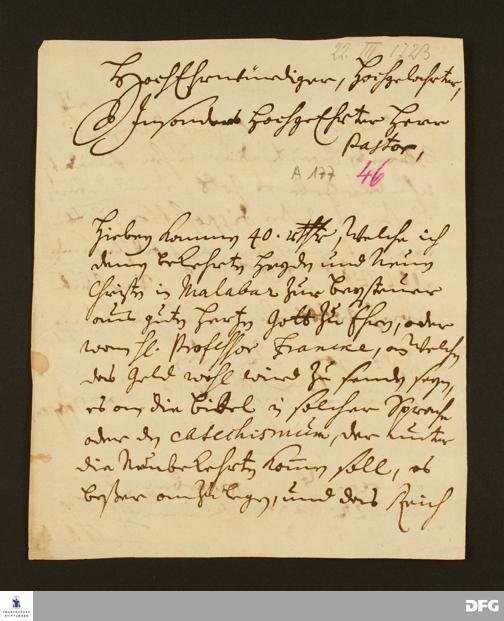 22. III. 1723
HochEhrwürdiger, Hochgelahrter,
Insonders HochgeEhrter Herr
Pastor,
A 177
46
Hiebey kommen 40. rthlr, welche ich
denen bekehrten Heyden und Neuen
Christen in Malabar zur beysteuer
aus guten hertzen Gott zu Ehren, oder
wenn H. Professor Francke, an welchen
das Geld wohl wird zu senden seyn,
es an die bibel in solcher Sprache
oder den Catechismum, der unter
die Neubekehrten kommen soll, es
beßer anzulegen, und das Reich
FRANCKESCHE
STIFTUNGEN
DFG